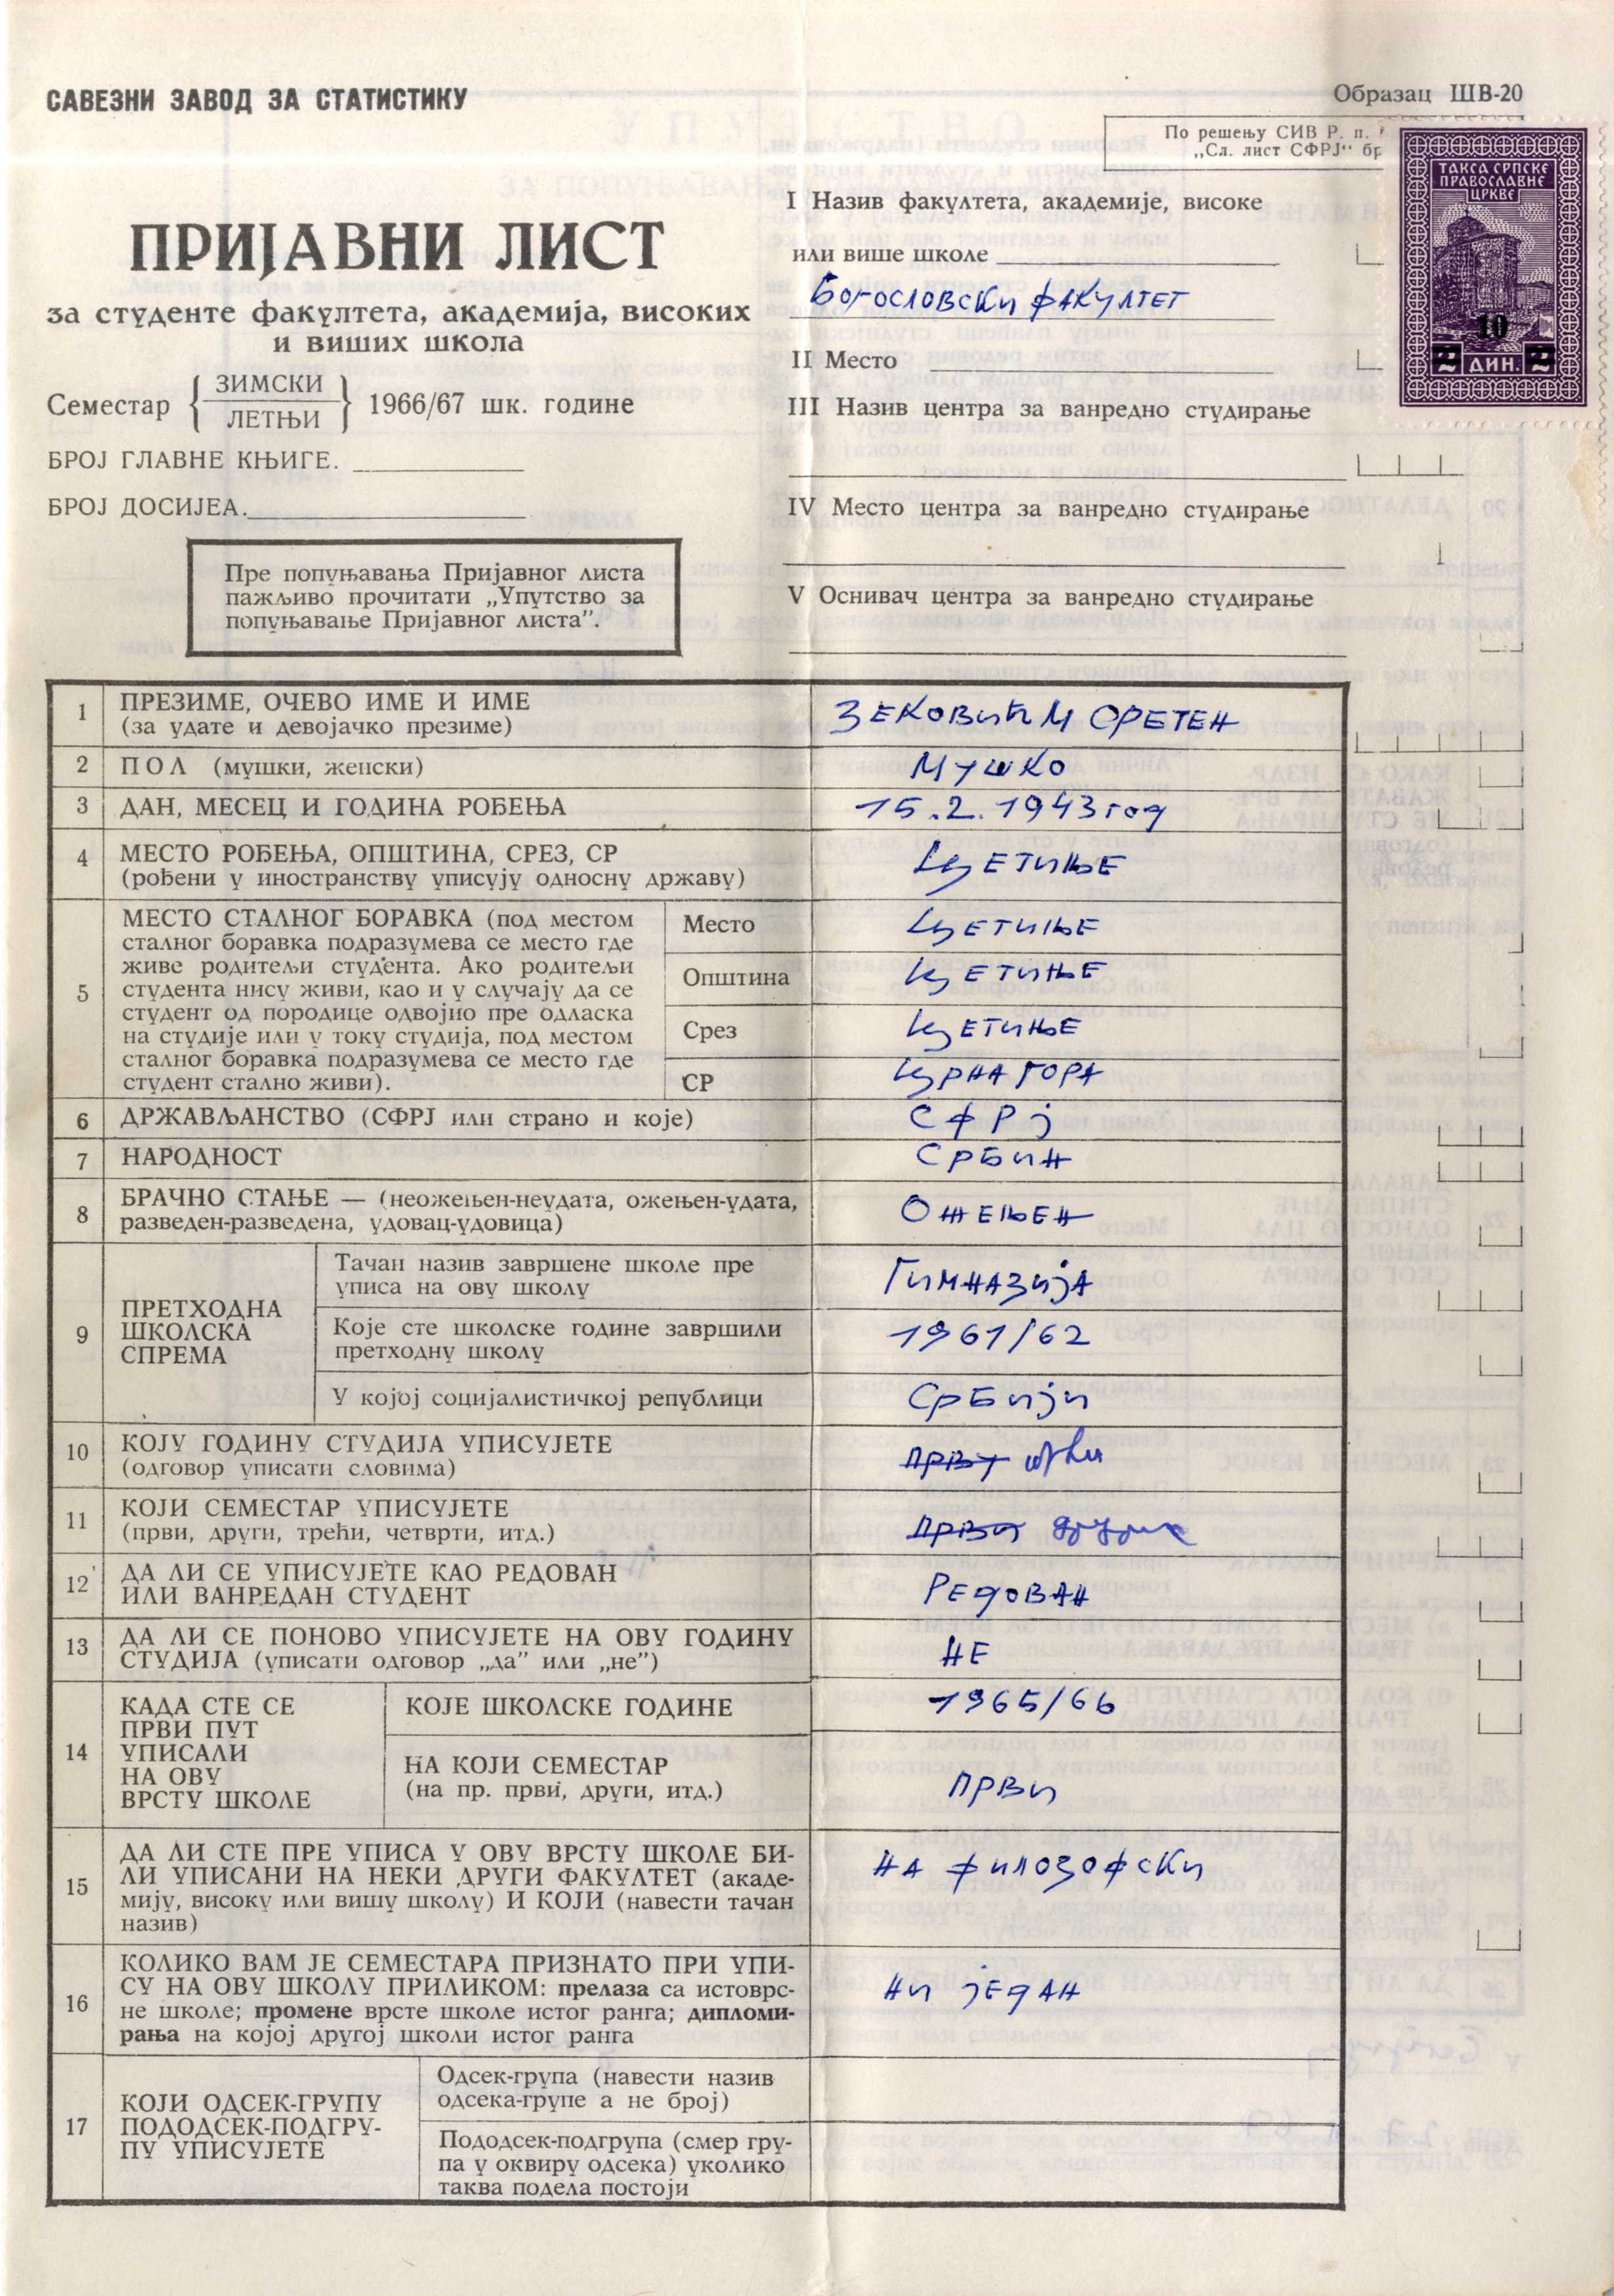 САВЕЗНИ ЗАВОД ЗА СТАТИСТИКУ
Образац ШВ-20
По решењу СИВ Р. п.
„Сл. лист СФРЈ“ бр
ТАКСА СРПСКЕ
ПРАВОСЛАВНЕ
ЦРКВЕ
10
2 ДИН. 2
ПРИЈАВНИ ЛИСТ
за студенте факултета, академија, високих
и виших школа
Семестар { ЗИМСКИ
ЛЕТЊИ } 1966/67 шк. године
БРОЈ ГЛАВНЕ КЊИГЕ.
БРОЈ ДОСИЈЕА.
Пре попуњавања Пријавног листа
пажљиво прочитати „Упутство за
попуњавање Пријавног листа”.
I Назив факултета, академије, високе
или више школе
Богословски факултет
II Место
III Назив центра за ванредно студирање
IV Место центра за ванредно студирање
V Оснивач центра за ванредно студирање
1 ПРЕЗИМЕ, ОЧЕВО ИМЕ И ИМЕ
(за удате и девојачко презиме)
ЗЕКОВИЋ М СРЕТЕН
2 ПОЛ (мушки, женски) МУШКО
3 ДАН, МЕСЕЦ И ГОДИНА РОЂЕЊА 15.2.1943 год
4 МЕСТО РОЂЕЊА, ОПШТИНА, СРЕЗ, СР
(рођени у иностранству уписују односну државу)
ЦЕТИЊЕ
5 МЕСТО СТАЛНОГ БОРАВКА (под местом
сталног боравка подразумева се место где
живе родитељи студента. Ако родитељи
студента нису живи, као и у случају да се
студент од породице одвојио пре одласка
на студије или у току студија, под местом
сталног боравка подразумева се место где
студент стално живи).
Место ЦЕТИЊЕ
Општина ЦЕТИЊЕ
Срез ЦЕТИЊЕ
СР ЦРНА ГОРА
6 ДРЖАВЉАНСТВО (СФРЈ или страно и које) СФРЈ
7 НАРОДНОСТ СРБИН
8 БРАЧНО СТАЊЕ — (неожењен-неудата, ожењен-удата,
разведен-разведена, удовац-удовица)
ОЖЕЊЕН
9 ПРЕТХОДНА
ШКОЛСКА
СПРЕМА
Тачан назив завршене школе пре
уписа на ову школу
ГИМНАЗИЈА
Које сте школске године завршили
претходну школу
1961/62
У којој социјалистичкој републици СРБИЈИ
10 КОЈУ ГОДИНУ СТУДИЈА УПИСУЈЕТЕ
(одговор уписати словима)
ПРВУ
11 КОЈИ СЕМЕСТАР УПИСУЈЕТЕ
(први, други, трећи, четврти, итд.)
ПРВИ други
12 ДА ЛИ СЕ УПИСУЈЕТЕ КАО РЕДОВАН
ИЛИ ВАНРЕДАН СТУДЕНТ
РЕДОВАН
13 ДА ЛИ СЕ ПОНОВО УПИСУЈЕТЕ НА ОВУ ГОДИНУ
СТУДИЈА (уписати одговор „да” или „не”)
НЕ
14 КАДА СТЕ СЕ
ПРВИ ПУТ
УПИСАЛИ
НА ОВУ
ВРСТУ ШКОЛЕ
КОЈЕ ШКОЛСКЕ ГОДИНЕ 1965/66
НА КОЈИ СЕМЕСТАР
(на пр. први, други, итд.)
ПРВИ
15 ДА ЛИ СТЕ ПРЕ УПИСА У ОВУ ВРСТУ ШКОЛЕ БИ-
ЛИ УПИСАНИ НА НЕКИ ДРУГИ ФАКУЛТЕТ (акаде-
мију, високу или вишу школу) И КОЈИ (навести тачан
назив)
НА ФИЛОЗОФСКИ
16 КОЛИКО ВАМ ЈЕ СЕМЕСТАРА ПРИЗНАТО ПРИ УПИ-
СУ НА ОВУ ШКОЛУ ПРИЛИКОМ: прелаза са истоврс-
не школе; промене врсте школе истог ранга; дипломи-
рања на којој другој школи истог ранга
НИ ЈЕДАН
17 КОЈИ ОДСЕК-ГРУПУ
ПОДОДСЕК-ПОДГРУ-
ПУ УПИСУЈЕТЕ
Одсек-група (навести назив
одсека-групе а не број)
Пододсек-подгрупа (смер гру-
па у оквиру одсека) уколико
таква подела постоји